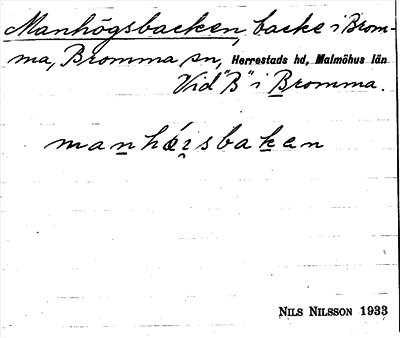 Manhögsbacken, backe i Brom-
ma, Bromma sn, Herrestads hd, Malmöhus län
Vid "B" i Bromma.
manhǿi̯sbaken
NILS NILSSON 1933